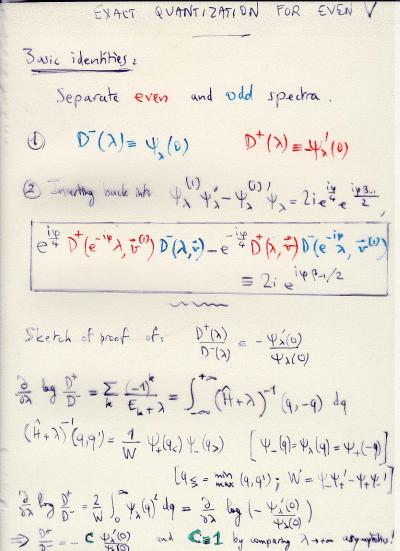 EXACT QUANTIZATION FOR EVEN V
Basic identities:
Separate even and odd spectra.
① D⁻(λ) ≡ ψ_λ(0) D⁺(λ) ≡ -ψ'_λ(0)
② Inserting back into ψ_λ^[1] ψ'_λ - ψ_λ^[1]' ψ_λ = 2i e^{iφ/4} e^{iφβ₋₁/2},
e^{iφ/4} D⁺(e^{-iφ}λ, v⃗^[1]) D⁻(λ, v⃗) - e^{-iφ/4} D⁺(λ, v⃗) D⁻(e^{-iφ}λ, v⃗^[1])
≡ 2i e^{iφβ₋₁/2}
Sketch of proof of: D⁺(λ)/D⁻(λ) = -ψ'_λ(0)/ψ_λ(0)
∂/∂λ log D⁺/D⁻ = Σ_k (-1)^k/(E_k+λ) = ∫_{-∞}^{+∞} (Ĥ+λ)⁻¹(q,-q) dq
(Ĥ+λ)⁻¹(q,q') = 1/W ψ₊(q_<) ψ₋(q_>) [ψ₋(q) = ψ_λ(q) = ψ₊(-q)]
[q_≶ = min max (q,q'); W = ψ₋ψ₊' - ψ₊ψ₋']
∂/∂λ log D⁺/D⁻ = 2/W ∫₀^∞ ψ_λ(q)² dq = ∂/∂λ log(-ψ'_λ(0)/ψ_λ(0))
⇒ D⁺/D⁻ = -C ψ'_λ(0)/ψ_λ(0) and C=1 by comparing λ→+∞ asymptotics!